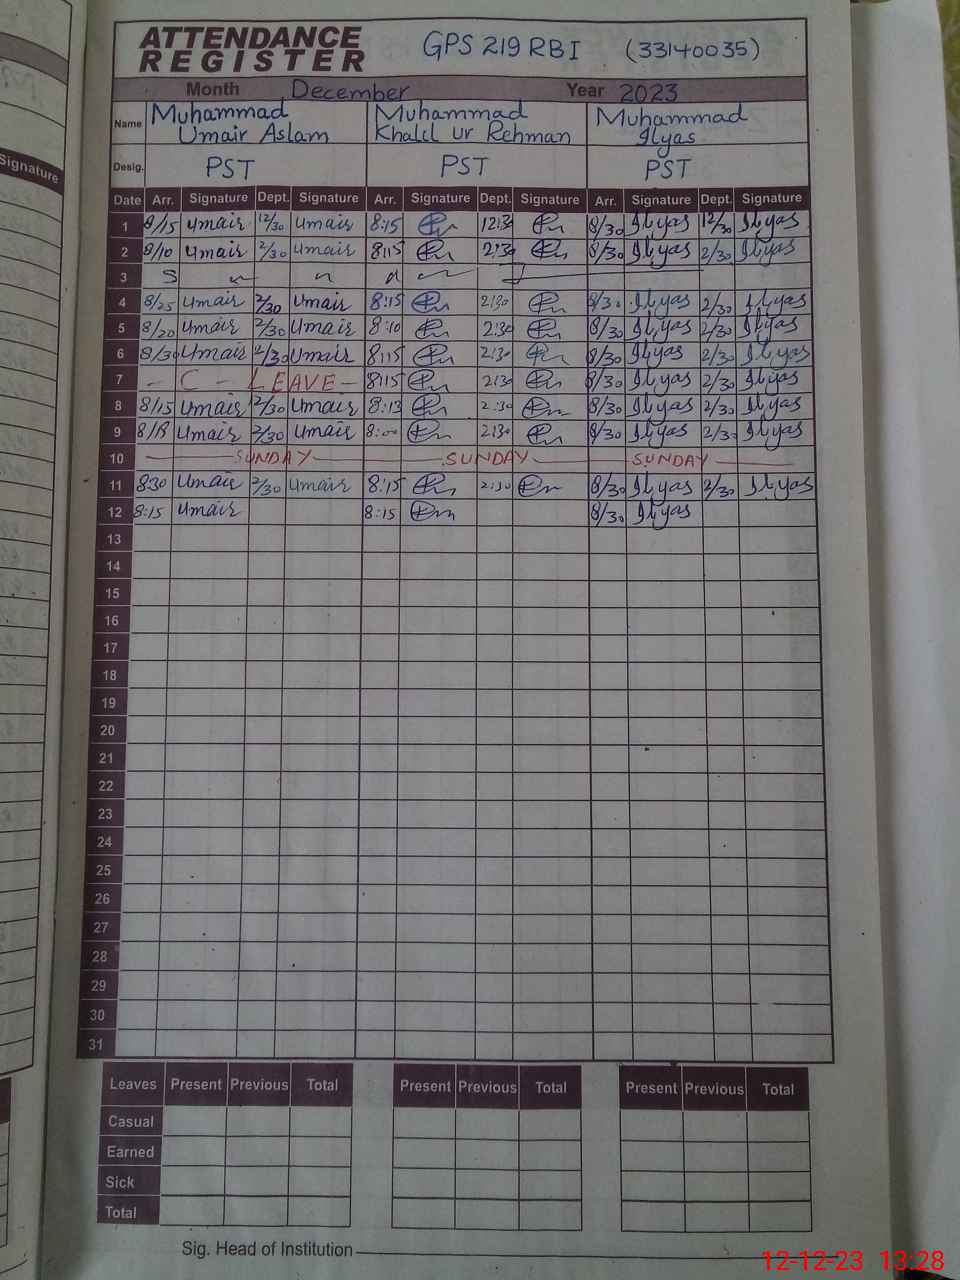 ATTENDANCE REGISTER GPS 219 RBI (33140035)
Month December Year 2023
Name Muhammad Umair Aslam Muhammad Khalil ur Rehman Muhammad Ilyas
Desig. PST PST PST
Date Arr. Signature Dept. Signature Arr. Signature Dept. Signature Arr. Signature Dept. Signature
1 8/15 Umair 12/30 Umair 8:15 12:30 8/30 Ilyas 12/30 Ilyas
2 8/10 Umair 2/30 Umair 8:15 2:30 8/30 Ilyas 2/30 Ilyas
3 S
4 8/25 Umair 2/30 Umair 8:15 2:30 8/30 Ilyas 2/30 Ilyas
5 8/20 Umair 2/30 Umair 8:10 2:30 8/30 Ilyas 2/30 Ilyas
6 8/30 Umair 2/30 Umair 8:15 2:30 8/30 Ilyas 2/30 Ilyas
7 - C - LEAVE - 8:15 2:30 8/30 Ilyas 2/30 Ilyas
8 8/15 Umair 2/30 Umair 8:13 2:30 8/30 Ilyas 2/30 Ilyas
9 Umair 2/30 Umair 8:00 2:30 8/30 Ilyas 2/30 Ilyas
10 SUNDAY SUNDAY SUNDAY
11 8:30 Umair 2/30 Umair 8:15 2:30 8/30 Ilyas 2/30 Ilyas
12 8:15 Umair 8:15 8/30 Ilyas
13
14
15
16
17
18
19
20
21
22
23
24
25
26
27
28
29
30
31
Leaves Present Previous Total Present Previous Total Present Previous Total
Casual
Earned
Sick
Total
Sig. Head of Institution
12-12-23 13:28
Signature